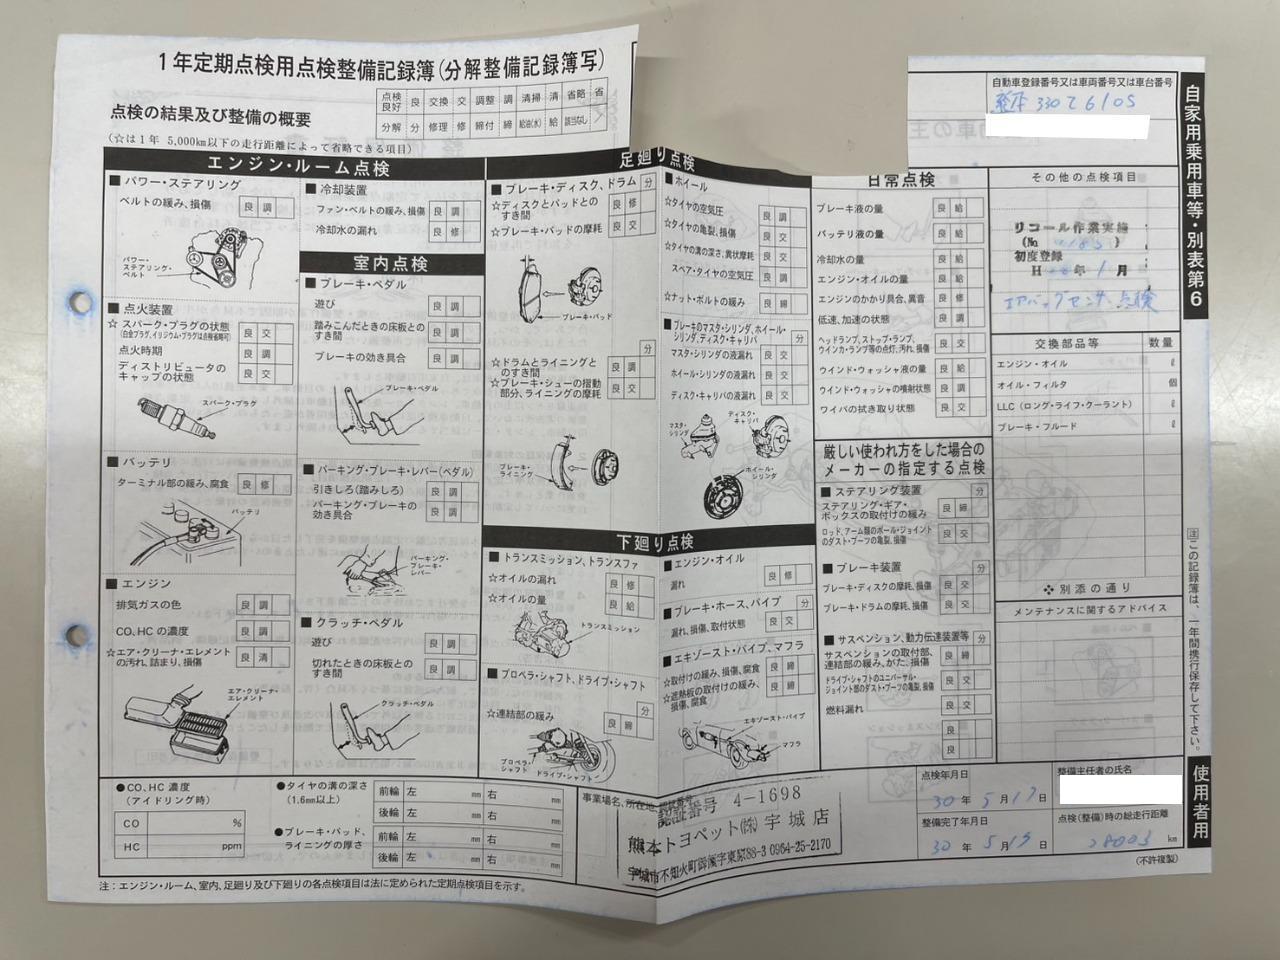 1年定期点検用点検整備記録簿(分解整備記録簿写)
点検の結果及び整備の概要
(☆は1年 5,000km以下の走行距離によって省略できる項目)
点検良好 良 交換 交 調整 調 清掃 清 省略 省
分解 分 修理 修 締付 締 給油(水) 給 該当なし
自動車登録番号又は車両番号又は車台番号
自家用乗用車等・別表第6
エンジン・ルーム点検
■パワー・ステアリング
ベルトの緩み、損傷 良 調
パワー・ステアリング・ベルト
■点火装置
☆スパーク・プラグの状態
(白金プラグ、イリジウム・プラグは点検省略可) 良 交
点火時期 良 調
ディストリビュータのキャップの状態 良 交
スパーク・プラグ
■バッテリ
ターミナル部の緩み、腐食 良 修
バッテリ
■エンジン
排気ガスの色 良 調
CO、HCの濃度 良 調
☆エア・クリーナ・エレメントの汚れ、詰まり、損傷 良 清
エア・クリーナ・エレメント
■冷却装置
ファン・ベルトの緩み、損傷 良 調
冷却水の漏れ 良 修
室内点検
■ブレーキ・ペダル
遊び 良 調
踏みこんだときの床板とのすき間 良 調
ブレーキの効き具合 良 調
ブレーキ・ペダル
■パーキング・ブレーキ・レバー(ペダル)
引きしろ(踏みしろ) 良 調
パーキング・ブレーキの効き具合 良 調
パーキング・ブレーキ・レバー
■クラッチ・ペダル
遊び 良 調
切れたときの床板とのすき間 良 調
クラッチ・ペダル
足廻り点検
■ブレーキ・ディスク、ドラム 分
☆ディスクとパッドとのすき間 良 修
☆ブレーキ・パッドの摩耗 良 交
ブレーキ・パッド
分
☆ドラムとライニングとのすき間 良 調
☆ブレーキ・シューの摺動部分、ライニングの摩耗 良 交
ブレーキ・ライニング
■ホイール
☆タイヤの空気圧 良 調
☆タイヤの亀裂、損傷 良 交
☆タイヤの溝の深さ、異状摩耗 良 交
スペア・タイヤの空気圧 良 調
☆ナット・ボルトの緩み 良 締
■ブレーキのマスタ・シリンダ、ホイール・シリンダ、ディスク・キャリパ 分
マスタ・シリンダの液漏れ 良 交
ホイール・シリンダの液漏れ 良 交
ディスク・キャリパの液漏れ 良 交
マスタ・シリンダ
ディスク・キャリパ
ホイール・シリンダ
下廻り点検
■トランスミッション、トランスファ
☆オイルの漏れ 良 修
☆オイルの量 良 給
トランスミッション
■プロペラ・シャフト、ドライブ・シャフト
分
☆連結部の緩み 良 締
プロペラ・シャフト
ドライブ・シャフト
■エンジン・オイル
漏れ 良 修
■ブレーキ・ホース、パイプ 分
漏れ、損傷、取付状態 良 交
■エキゾースト・パイプ、マフラ
☆取付けの緩み、損傷、腐食 良 締
☆遮熱板の取付けの緩み、損傷、腐食 良 締
エキゾースト・パイプ
マフラ
日常点検
ブレーキ液の量 良 給
バッテリ液の量 良 給
冷却水の量 良 給
エンジン・オイルの量 良 給
エンジンのかかり具合、異音 良 修
低速、加速の状態 良 調
ヘッドランプ、ストップ・ランプ、ウインカ・ランプ等の点灯、汚れ、損傷 良 交
ウインド・ウォッシャ液の量 良 給
ウインド・ウォッシャの噴射状態 良 調
ワイパの拭き取り状態 良 交
厳しい使われ方をした場合のメーカーの指定する点検
■ステアリング装置 分
ステアリング・ギア・ボックスの取付けの緩み 良 締
ロッド、アーム類のボール・ジョイントのダスト・ブーツの亀裂、損傷 良 交
■ブレーキ装置 分
ブレーキ・ディスクの摩耗、損傷 良 交
ブレーキ・ドラムの摩耗、損傷 良 交
■サスペンション、動力伝達装置等 分
サスペンションの取付部、連結部の緩み、がた、損傷 良 締
ドライブ・シャフトのユニバーサル・ジョイント部のダスト・ブーツの亀裂、損傷 良 交
燃料漏れ 良 交
良
良
その他の点検項目
リコール作業実施
(No
初度登録
H 年 1月
エアバッグセンサ点検
交換部品等 数量
エンジン・オイル ℓ
オイル・フィルタ 個
LLC (ロング・ライフ・クーラント) ℓ
ブレーキ・フルード ℓ
❖別添の通り
メンテナンスに関するアドバイス
注 この記録簿は、一年間携行保存して下さい。
使用者用
●CO、HC濃度(アイドリング時)
CO %
HC ppm
●タイヤの溝の深さ(1.6mm以上)
前輪 左 mm 右 mm
後輪 左 mm 右 mm
●ブレーキ・パッド、ライニングの厚さ
前輪 左 mm 右 mm
後輪 左 mm 右 mm
事業場名、所在地、認証番号
認証番号 4-1698
熊本トヨペット(株)宇城店
0964-25-2170
点検年月日
30年 5月17日
整備完了年月日
30年 5月
整備主任者の氏名
点検(整備)時の総走行距離
km
(不許複製)
注:エンジン・ルーム、室内、足廻り及び下廻りの各点検項目は法に定められた定期点検項目を示す。